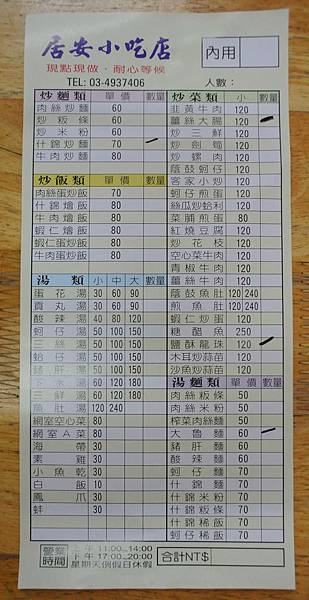 居安小吃店
內用
現點現做．耐心等候
TEL: 03-4937406
人數：
炒麵類 單價 數量
肉絲炒麵 60
炒粄條 60
炒米粉 60
什錦炒麵 70
牛肉炒麵 80
炒飯類 單價 數量
肉絲蛋炒飯 70
什錦燴飯 80
牛肉燴飯 80
蝦仁燴飯 80
蝦仁蛋炒飯 80
牛肉蛋炒飯 80
湯類 小 中 大 數量
蛋花湯 30 60 90
貢丸湯 30 60 90
酸辣湯 40 80 120
蚵仔湯 50 100 150
三絲湯 50 100 150
蛤仔湯 50 100 150
豬肝湯 50 100 150
下水湯 60 120 180
三鮮湯 60 120 180
魚肚湯 120 240
網室空心菜 80
網室A菜 80
海帶 30
素雞 30
小魚乾 30
白飯 10
鳳爪 30
蚌 30
炒菜類 小 數量
韭黃牛肉 120
薑絲大腸 120
炒三鮮 120
炒劍筍 120
炒螺肉 120
蔭鼓蚵仔 120
客家小炒 120
蚵仔煎蛋 120
絲瓜炒蛤利 120
菜脯煎蛋 80
紅燒豆腐 120
炒花枝 120
空心菜牛肉 120
青椒牛肉 120
蔭鼓魚肚 120 240
煎魚肚 120 240
蝦仁炒蛋 120
糖醋魚 250
鹽酥龍珠 120
木耳炒蒜苗 120
沙魚炒蒜苗 120
湯麵類 單價 數量
肉絲粄條 50
肉絲米粉 50
榨菜肉絲麵 50
大魯麵 60
豬肝麵 60
酸辣麵 60
蚵仔麵 70
什錦麵 70
什錦米粉 70
什錦粄條 70
什錦稀飯 70
蚵仔稀飯 70
營業時間
上午11:00~14:00
下午17:00~20:00
星期天例假日休假
合計NT$